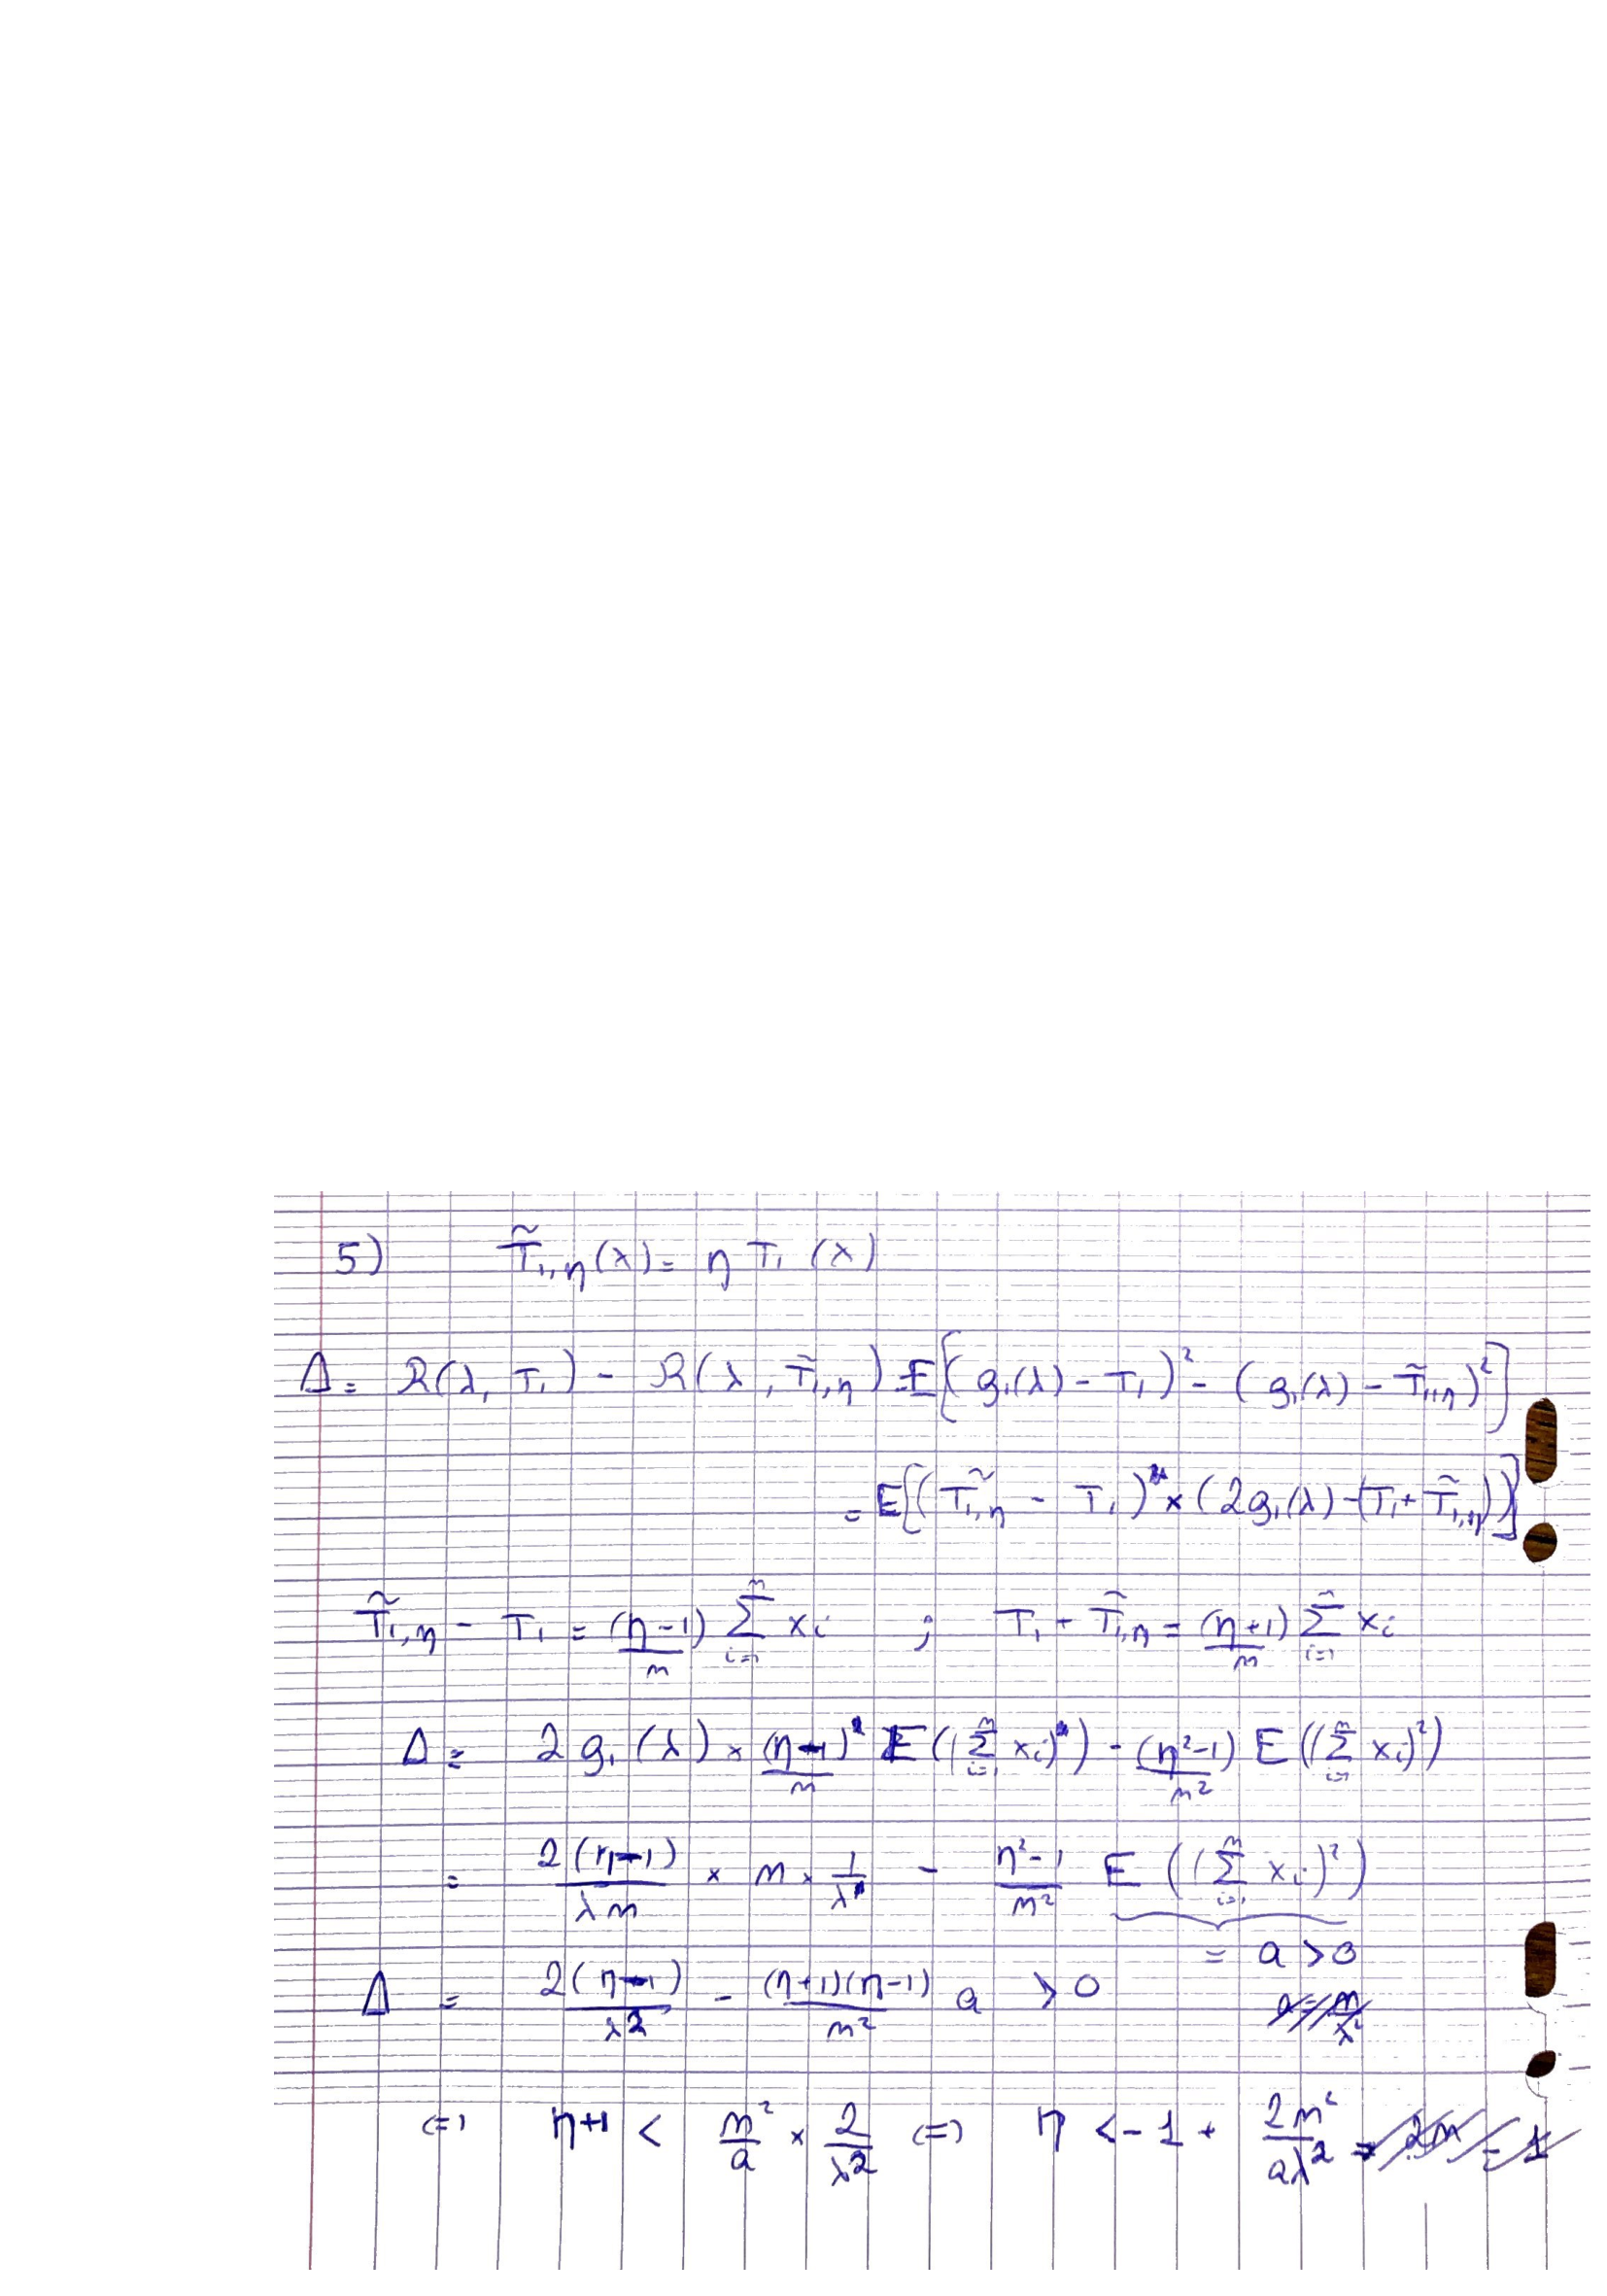 5) T̃₁,η(X) = η T₁(X)
Δ = R(λ, T₁) - R(λ, T̃₁,η) = E[(g₁(λ) - T₁)² - (g₁(λ) - T̃₁,η)²]
= E[(T̃₁,η - T₁) × (2g₁(λ) - (T₁ + T̃₁,η))]
T̃₁,η - T₁ = (η-1)/n ∑ᵢ₌₁ⁿ xᵢ ; T₁ + T̃₁,η = (η+1)/n ∑ᵢ₌₁ⁿ xᵢ
Δ = 2g₁(λ) × (η-1)/n E((∑ᵢ₌₁ⁿ xᵢ)) - (η²-1)/n² E((∑ᵢ₌₁ⁿ xᵢ)²)
= 2(η-1)/(λn) × n × 1/λ - (η²-1)/n² E((∑ᵢ₌₁ⁿ xᵢ)²)
= a > 0
Δ = 2(η-1)/λ² - (η+1)(η-1)/n² a > 0
a = n/λ²
(=) η+1 < n²/a × 2/λ² (=) η < -1 + 2n²/(aλ²) = 2n - 1